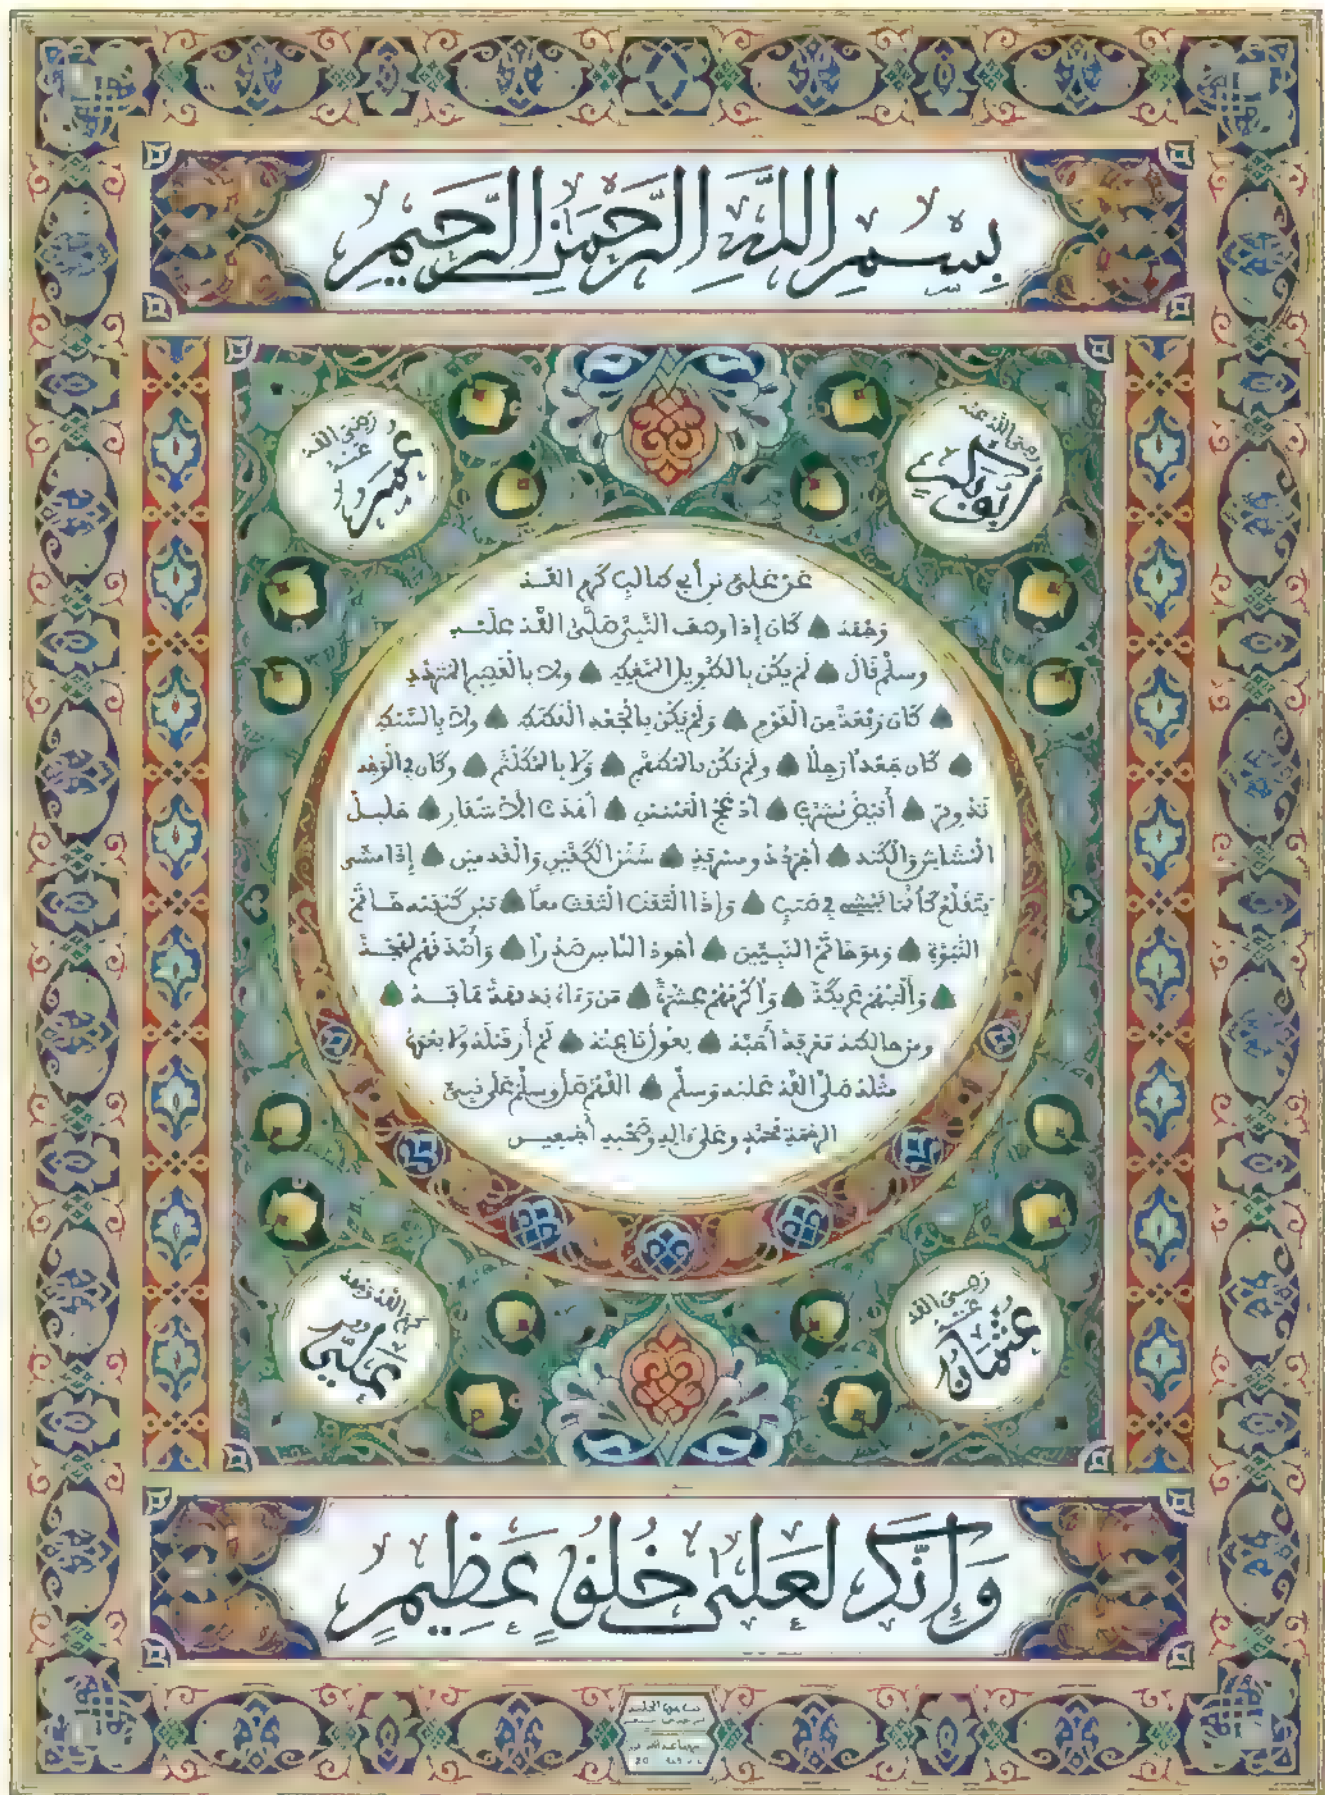 بِسْمِ اللَّهِ الرَّحْمَنِ الرَّحِيمِ
أبو بكر رضي الله عنه
عمر رضي الله عنه
عن علي بن أبي طالب كرم الله
وجهه كان إذا وصف النبي صلى الله عليه
وسلم قال لم يكن بالطويل الممغط ولا بالقصير المتردد
كان ربعة من القوم ولم يكن بالجعد القطط ولا بالسبط
كان جعدا رجلا ولم يكن بالمطهم ولا بالمكلثم وكان في الوجه
تدوير أبيض مشرب أدعج العينين أهدب الأشفار جليل
المشاش والكتد أجرد ذو مسربة شثن الكفين والقدمين إذا مشى
يتقلع كأنما يمشي في صبب وإذا التفت التفت معا بين كتفيه خاتم
النبوة وهو خاتم النبيين أجود الناس صدرا وأصدقهم لهجة
وألينهم عريكة وأكرمهم عشرة من رءاه بديهة هابه
ومن خالطه معرفة أحبه يقول ناعته لم أر قبله ولا بعده
مثله صلى الله عليه وسلم اللهم صل وسلم على نبي
الرحمة محمد وعلى ءاله وصحبه أجمعين
عثمان رضي الله عنه
علي كرم الله وجهه
وَإِنَّكَ لَعَلَى خُلُقٍ عَظِيمٍ